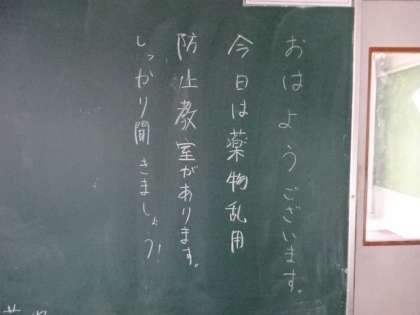 おはようございます。
今日は薬物乱用
防止教室があります。
しっかり聞きましょう!